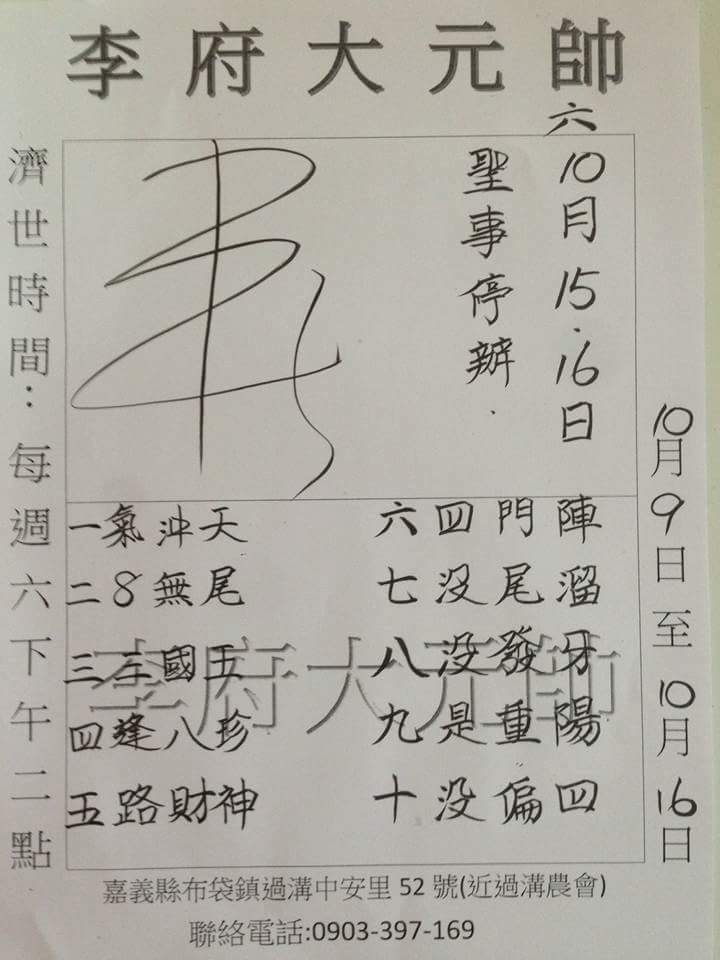 李府大元帥
六
10月15.16日
聖事停辦.
10月9日至10月16日
濟世時間：每週六下午二點
一氣沖天
二8無尾
三三國五
四逢八珍
五路財神
六四門陣
七没尾溜
八没發牙
九是重陽
十没偏四
李府大元帥
嘉義縣布袋鎮過溝中安里52號(近過溝農會)
聯絡電話:0903-397-169